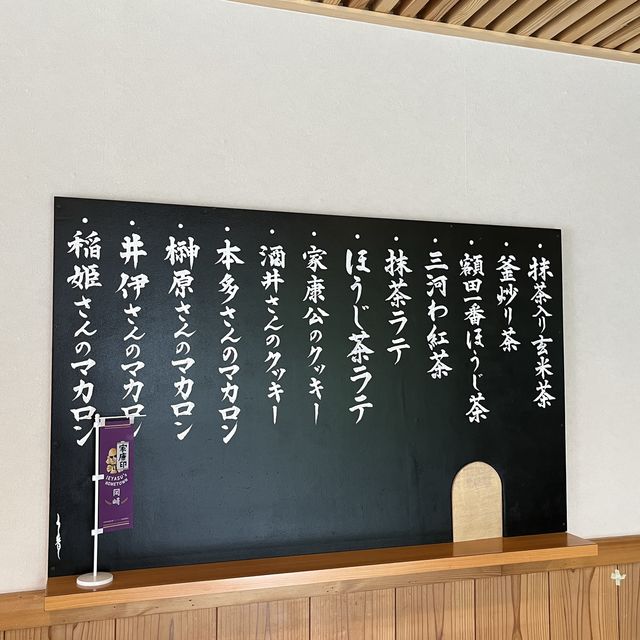 ・抹茶入り玄米茶
・釜炒り茶
・額田一番ほうじ茶
・三河わ紅茶
・抹茶ラテ
・ほうじ茶ラテ
・家康公のクッキー
・酒井さんのクッキー
・本多さんのマカロン
・榊原さんのマカロン
・井伊さんのマカロン
・稲姫さんのマカロン
家康印
IEYASU'S
HOMETOWN
岡崎